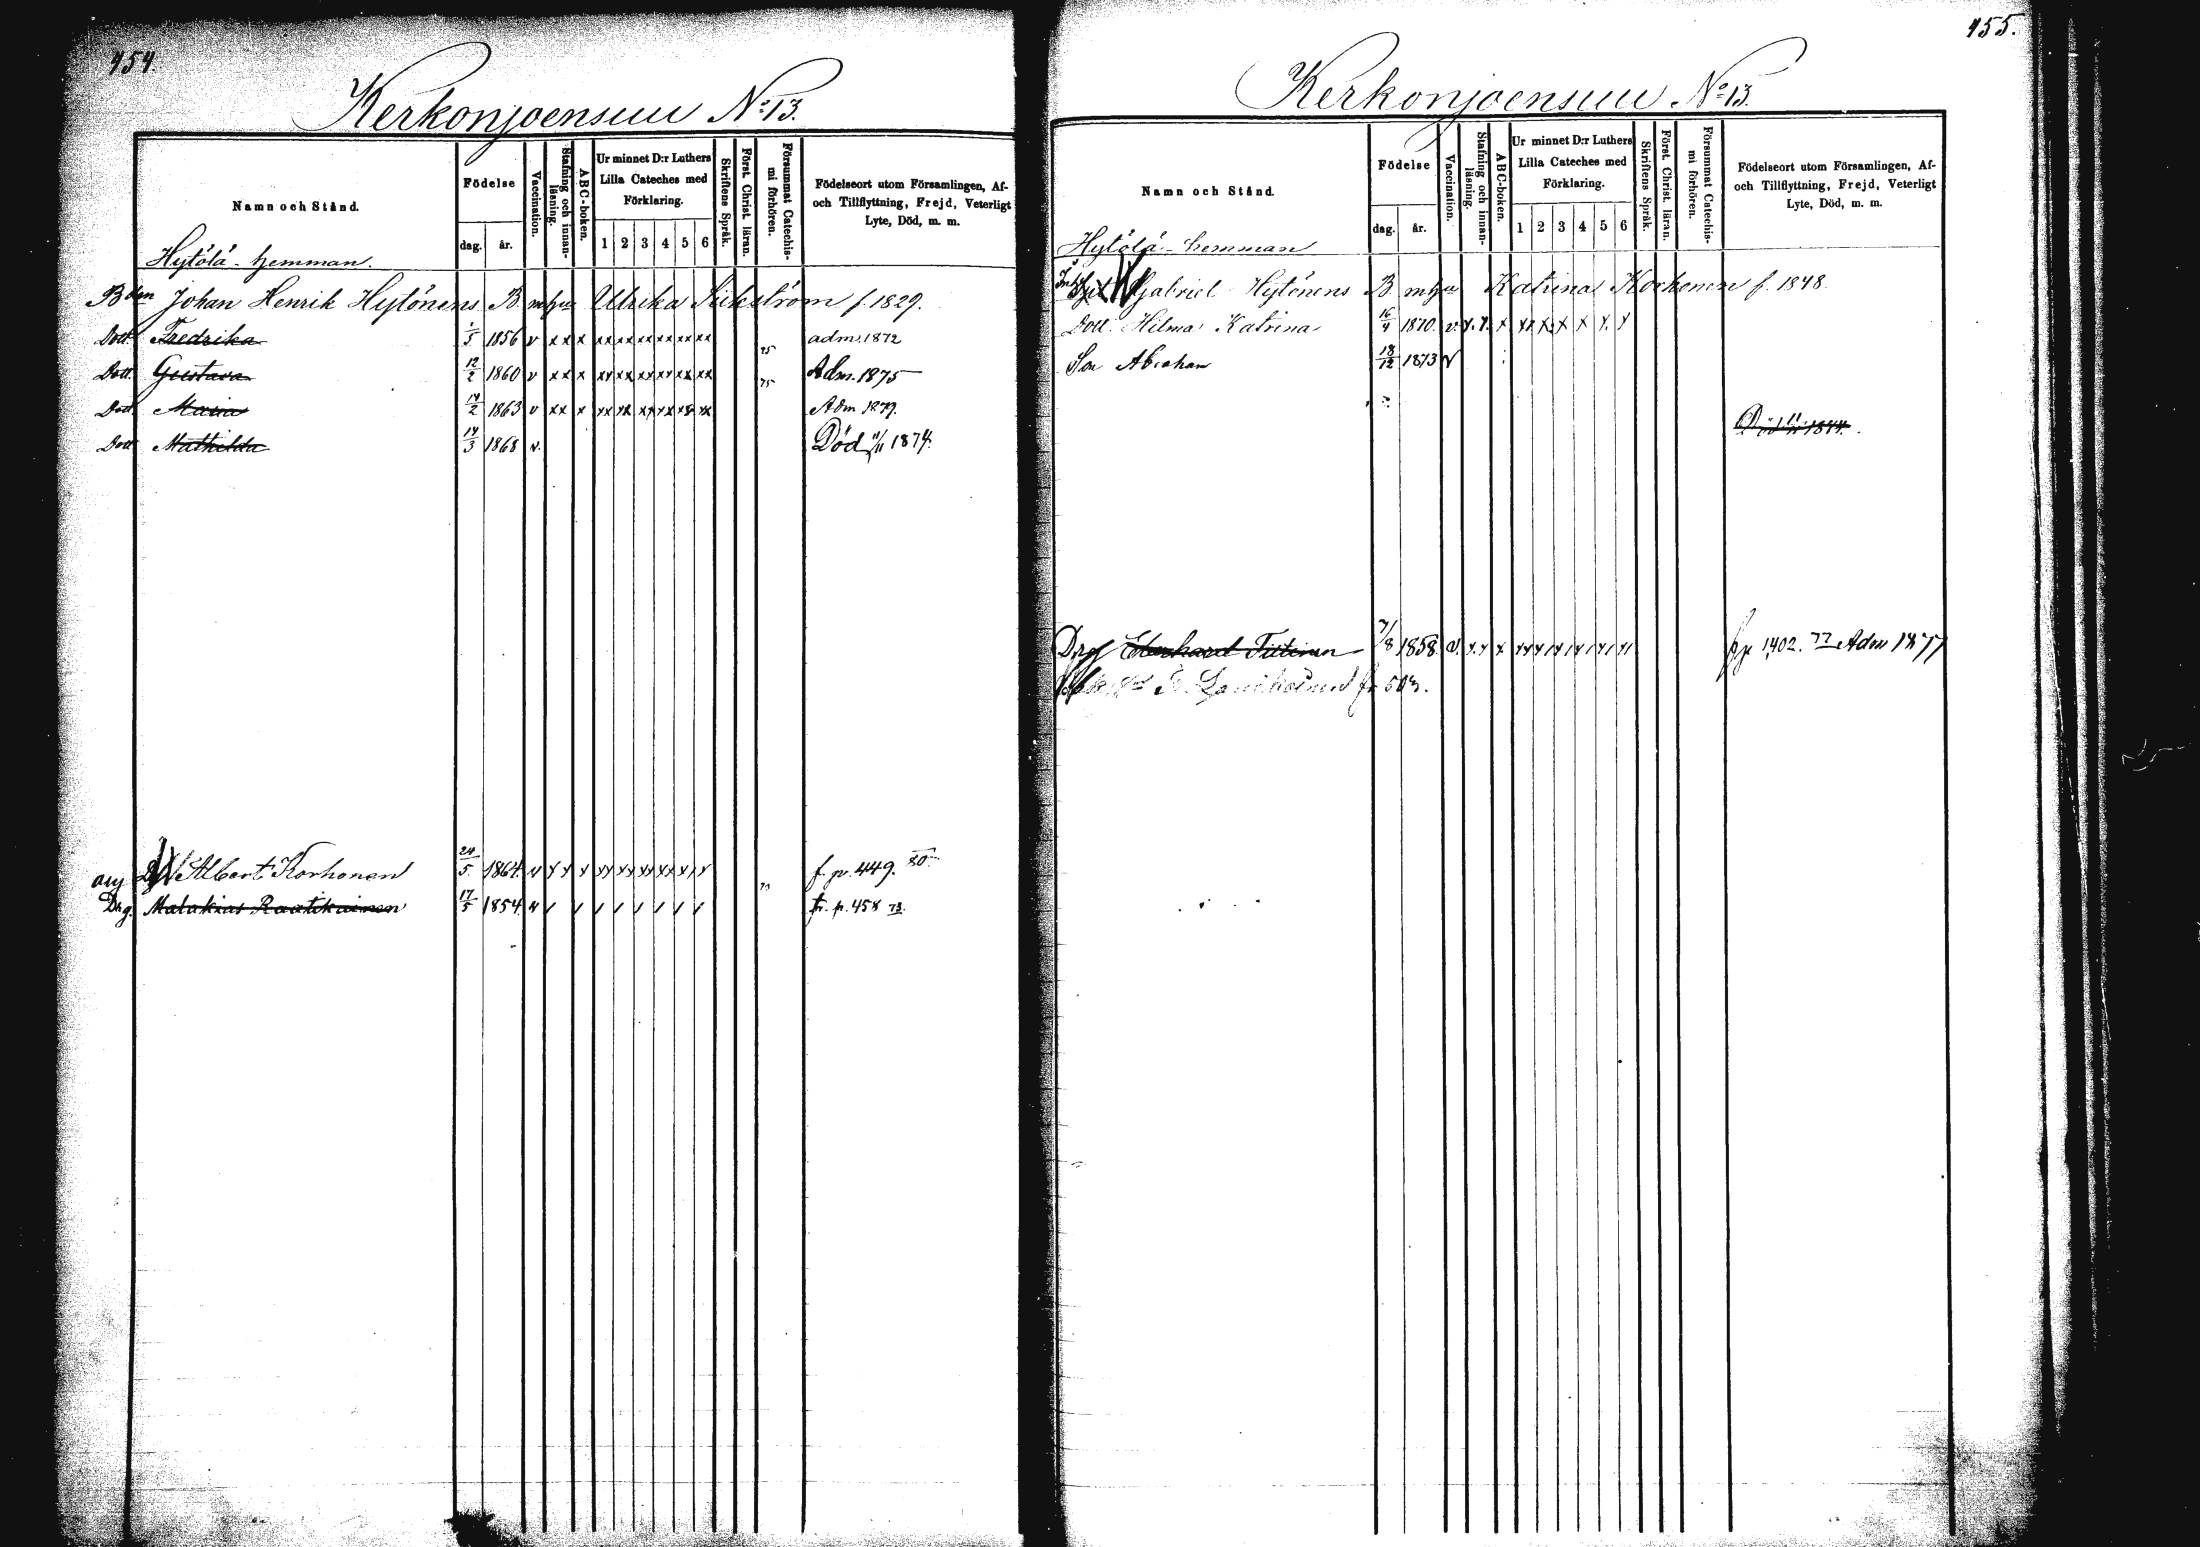 454.
Kerkonjoensuu No 13.
Namn och Stånd.
Födelse
dag.
år.
Vaccination.
Stafning och innan-
läsning.
ABC-boken.
Ur minnet D:r Luthers
Lilla Cateches med
Förklaring.
1 2 3 4 5 6
Skriftens Språk.
Först. Christ. läran.
Försummat Catechis-
mi förhören.
Födelseort utom Församlingen, Af-
och Tillflyttning, Frejd, Veterligt
Lyte, Död, m. m.
Hytölä - hemman.
Bden Johan Henrik Hytönens B mhu Ulrika f. 1829.
Dott Fredrika 1856 v x x x xx xx xx xx xx xx adm. 1872
75
Dott. Gustava 12/2 1860 v x x x xx xx xx xx xx xx Adm. 1875
75
Dott. Maria 14/2 1863 v x x x xx xx xx xx xx xx Adm 1879.
Dott Mathilda 14/3 1868 v. Död 11/11 1874.
Albert Korhonen 24/5 1864 f. p. 449. 80
Drg. Malakias Raatikainen 17/5 1854 fr. p. 458 73.
455.
Kerkonjoensuu No 13.
Namn och Stånd.
Födelse
dag.
år.
Vaccination.
Stafning och innan-
läsning.
ABC-boken.
Ur minnet D:r Luthers
Lilla Cateches med
Förklaring.
1 2 3 4 5 6
Skriftens Språk.
Först. Christ. läran.
Försummat Catechis-
mi förhören.
Födelseort utom Församlingen, Af-
och Tillflyttning, Frejd, Veterligt
Lyte, Död, m. m.
Hytölä - hemman
Gabriel Hytönens B mhu Katrina Korhonen f. 1848
Dott. Hilma Katrina 16/4 1870. v. x. x. x
Son Abraham 18/12 1873 v
Död 1874.
Drg Eberhard 7/8 1858 v. fr p 402. 77 Adm 1877
fr 503.